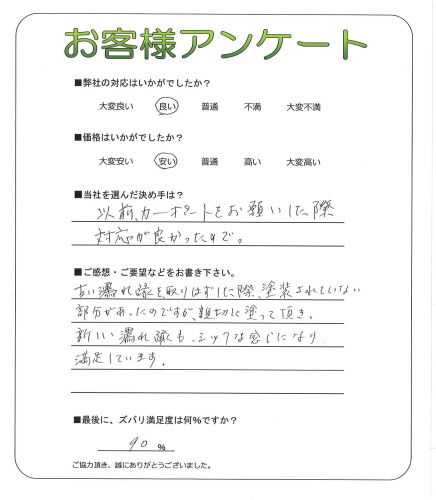 お客様アンケート
■弊社の対応はいかがでしたか?
大変良い 良い 普通 不満 大変不満
■価格はいかがでしたか?
大変安い 安い 普通 高い 大変高い
■当社を選んだ決め手は?
以前、カーポートをお願いした際
対応が良かったので。
■ご感想・ご要望などをお書き下さい。
古い濡れ縁を取りはずした際、塗装されていない
部分があったのですが、親切に塗って頂き。
新しい濡れ縁も、シックな感じになり
満足しています。
■最後に、ズバリ満足度は何%ですか?
90 %
ご協力頂き、誠にありがとうございました。